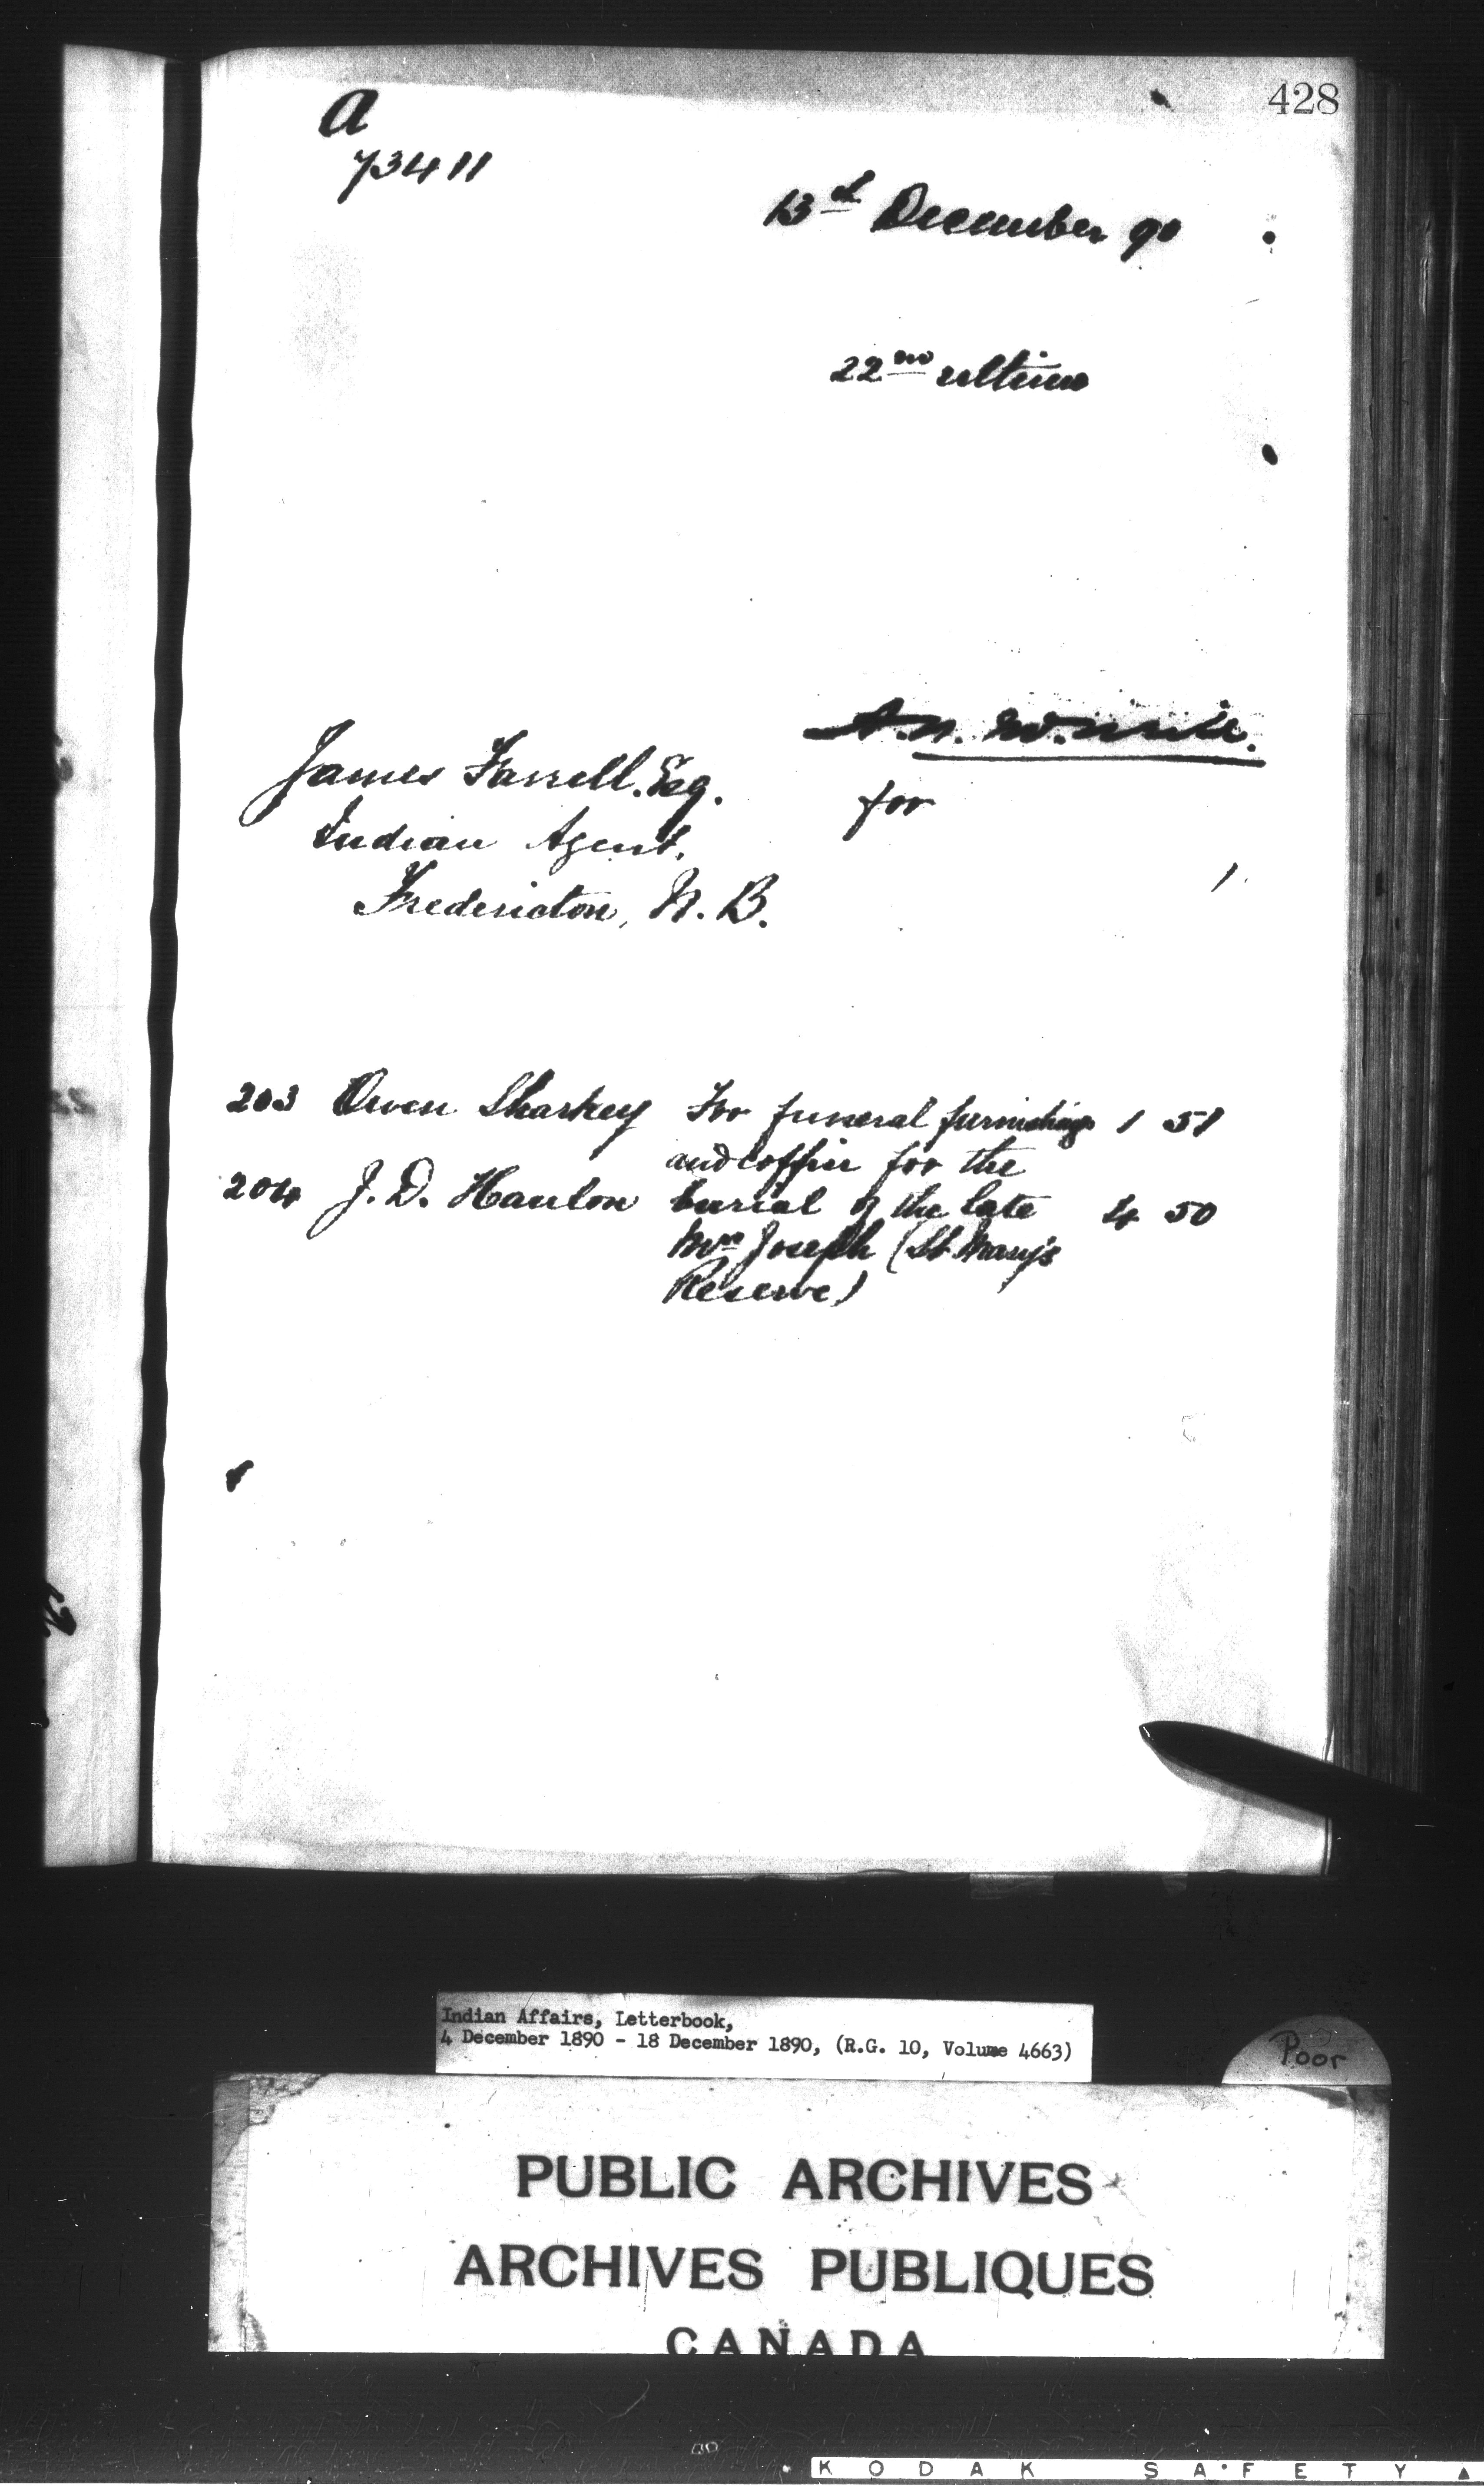 428
A
73411
13th December 90
22nd ultimo
A.N. McNeill.
James Farrell. Esq.
for
Indian Agent.
Fredericton, N. B.
203 Owen Sharkey For funeral furnishings 1 51
and coffin for the
204 J. D. Hanlon burial of the late 4 50
Mrs Joseph (St. Mary's
Reserve)
Indian Affairs, Letterbook,
4 December 1890 - 18 December 1890, (R.G. 10, Volume 4663)
Poor
PUBLIC ARCHIVES
ARCHIVES PUBLIQUES
CANADA
KODAK SAFETY